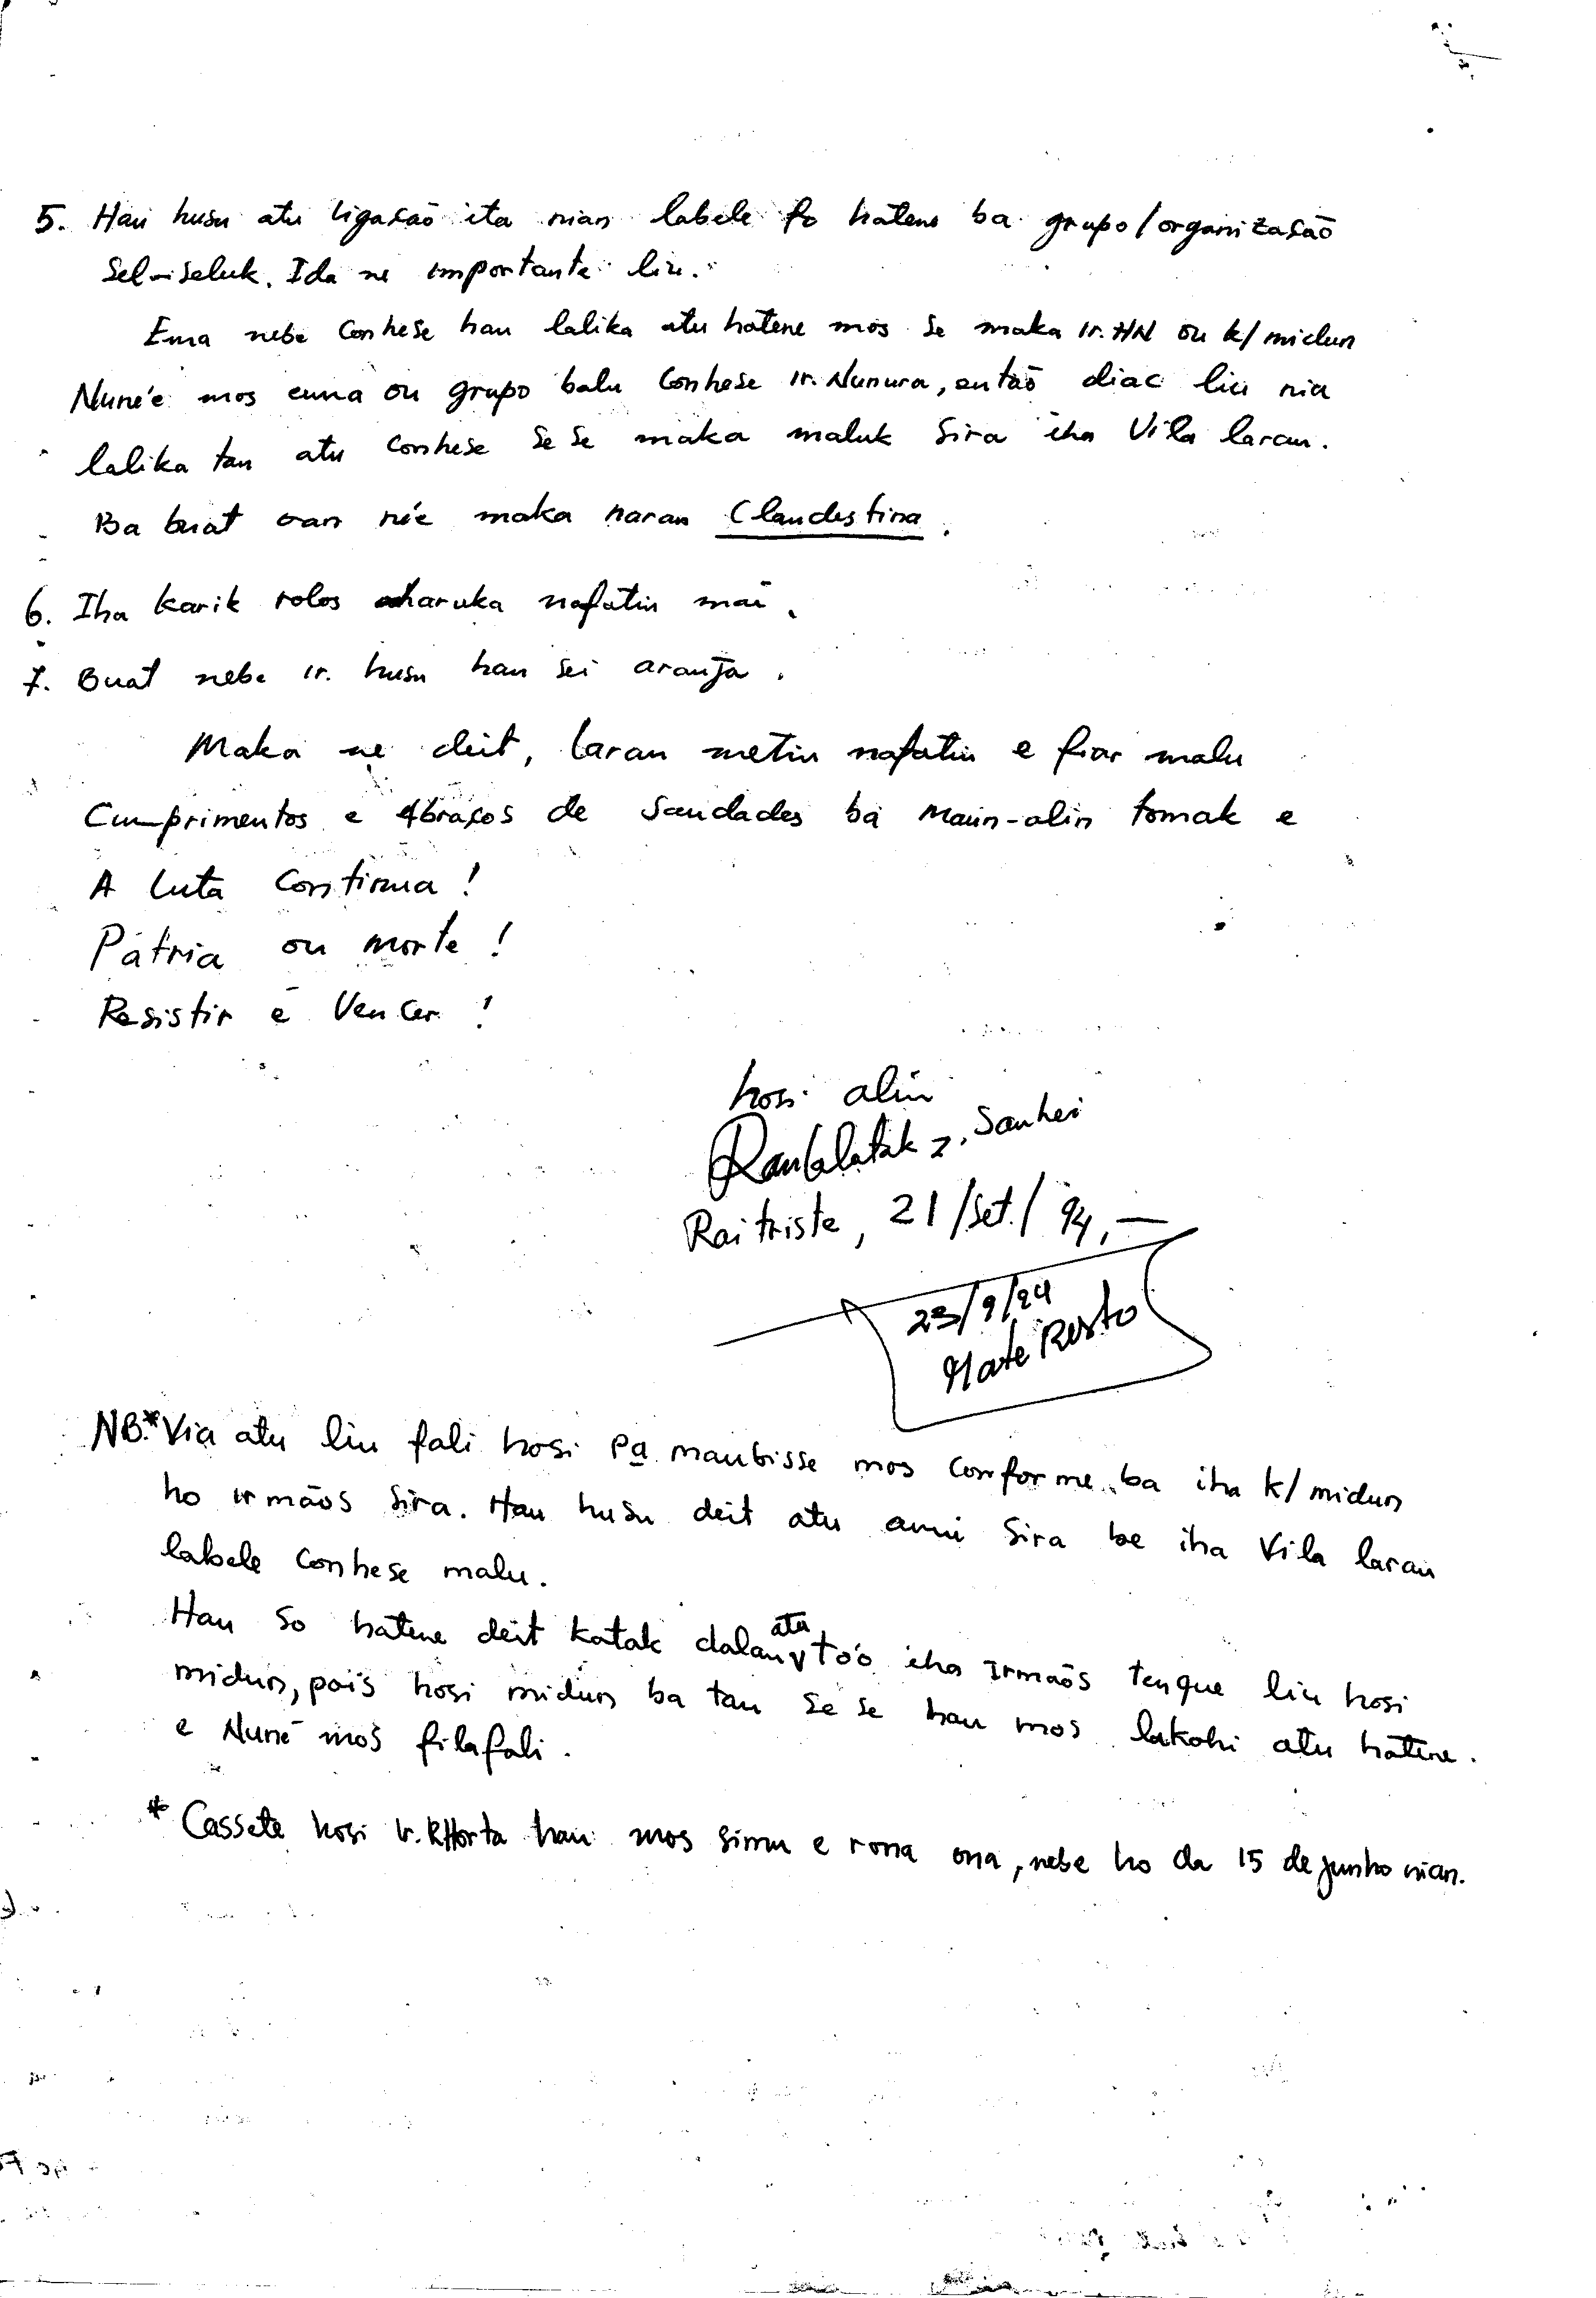 5. Hau husu atu ligasaõ ita nian labele fo hatene ba grupo/organizasaõ
Sel-seluk. Ida ne importante liu.
Ema nebe Conhese hau lalika atu hatene mos se maka Ir. HN ou k/midun
Nuné'e mos ema ou grupo balu Conhese Ir. Nunura, entaõ diac liu nia
lalika tan atu Conhese se se maka maluk sira iha Vila laran.
Ba buat oan né'e maka naran Clandestina.
6. Iha karik rolos haruka nafatin mai.
7. Buat nebe Ir. husu hau sei aranja.
Maka ne deit, laran metin nafatin e fiar malu
Cumprimentos e Abrasos de Saudades ba Maun-alin tomak e
A Luta Continua!
Pátria ou morte!
Resistir é Vencer!
hosi alin
Ranblatak z. Sanhei
Raitriste, 21/Set./94,—
23/9/94
Mate Resto
NB.* Via atu liu fali hosi Pa maubisse mos Conforme ba iha k/midun
ho irmãos sira. Hau husu deit atu ami sira be iha Vila laran
labele Conhese malu.
Hau So hatene deit katak dalan atu to'o iha Irmaõs tenque liu hosi
midun, pois hosi midun ba tan se se hau mos lakohi atu hatene.
e Nuné mos filafali.
* Cassete hosi Ir. RHorta hau mos simu e rona ona, nebe ho da 15 de junho nian.